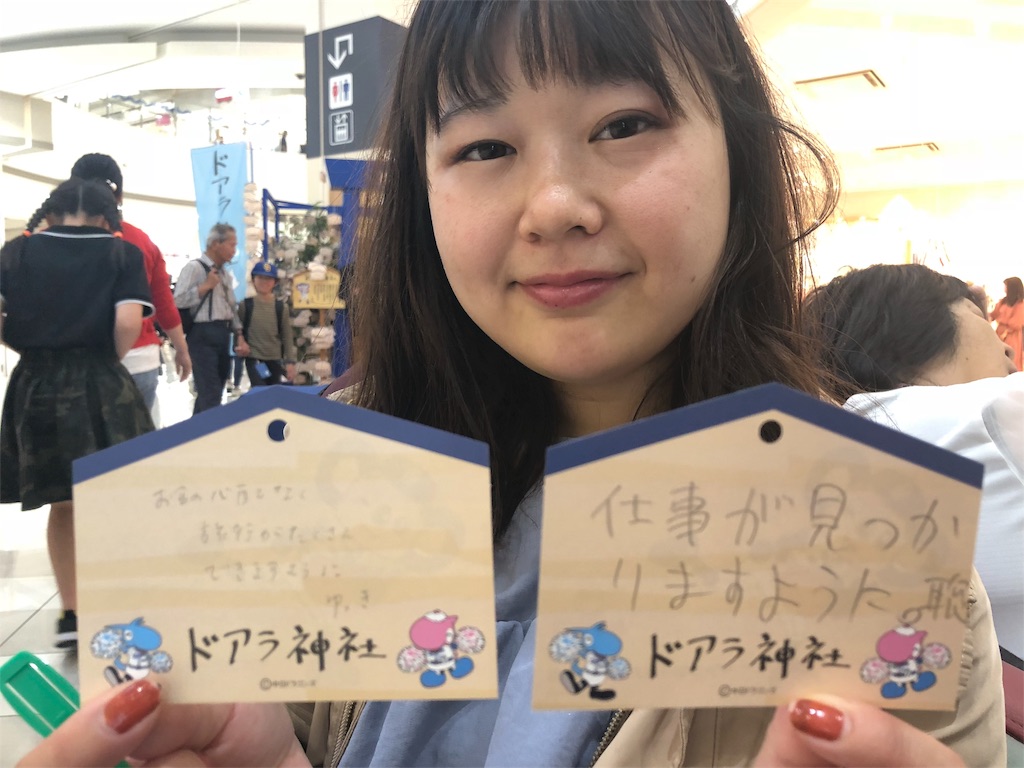 ドアラ
お金の心配もなく
旅行がたくさん
できますように
ゆき
ドアラ神社
©中日ドラゴンズ
仕事が見つか
りますように。聡
ドアラ神社
©中日ドラゴンズ